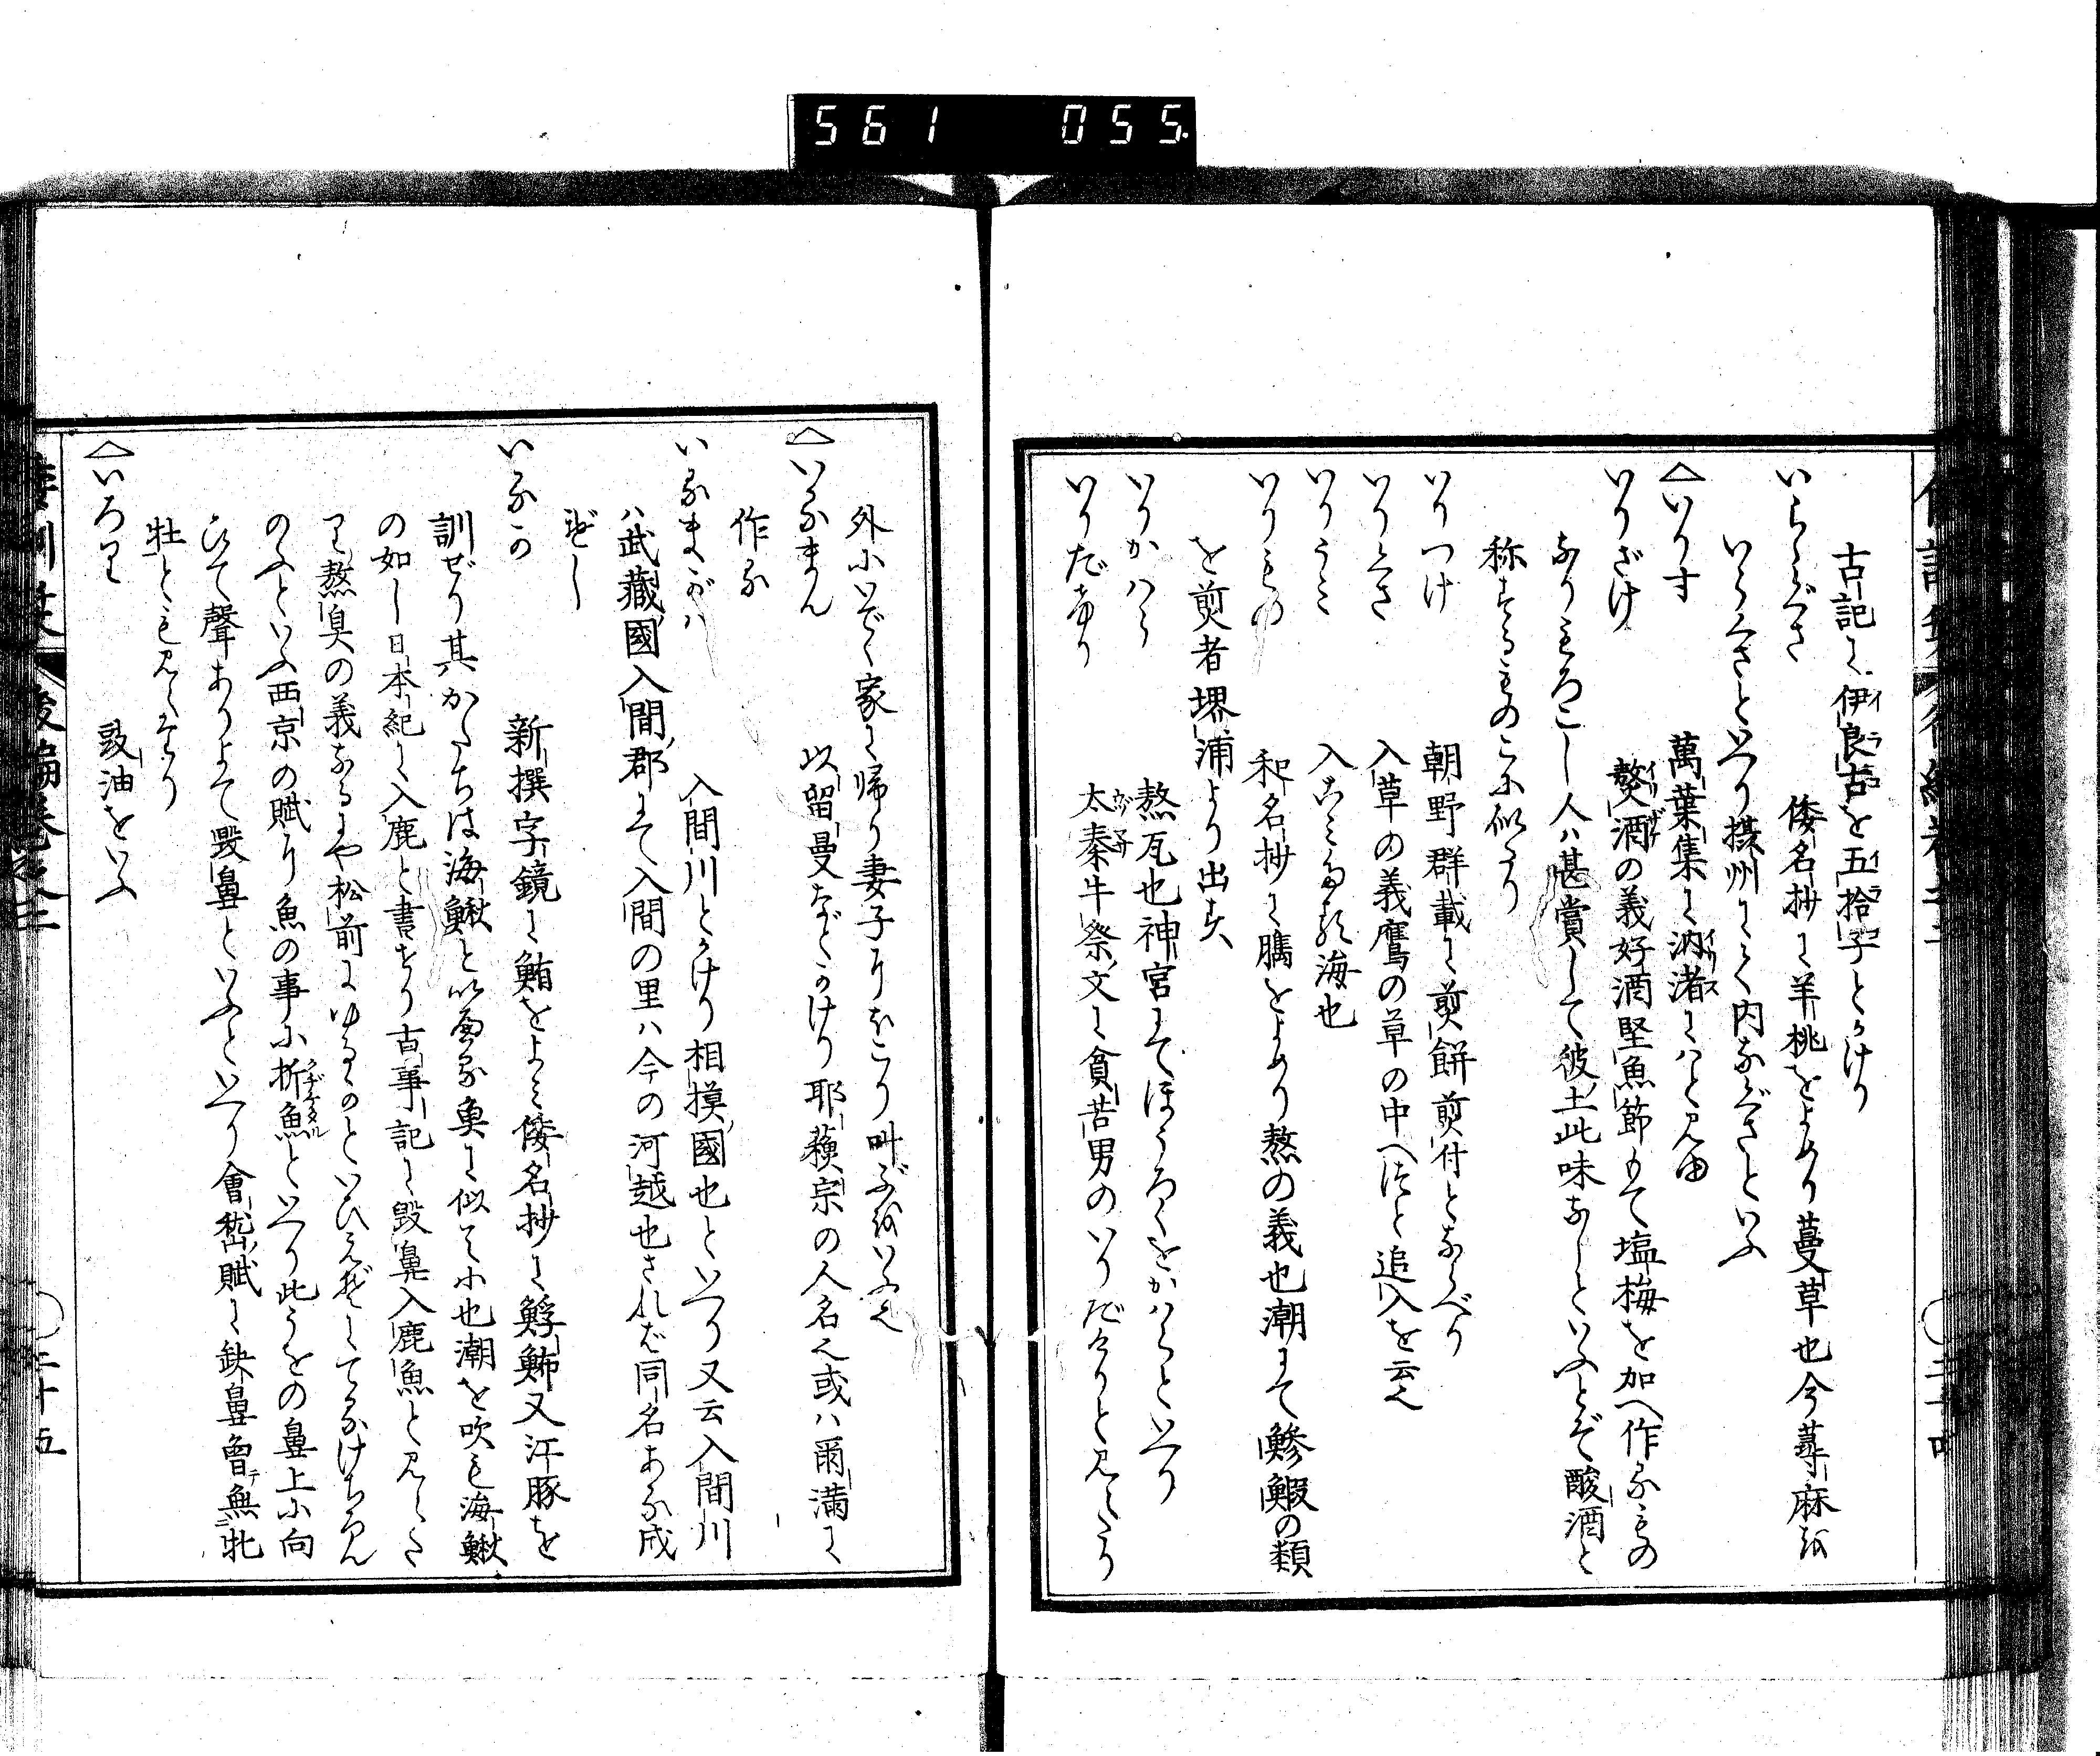 561 055.
古記に伊良古を五拾子とかけり
いらくさ 倭名抄に羊桃をよめり蔓草也今蕁麻を
いらくさといへり摂州にて内なぐさといふ
△いりす 萬葉集に汭渚にはと見ゆ
いりざけ 熬酒の義好酒堅魚節もて塩梅を加へ作るもの
なりもろこし人ハ甚賞して彼土此味なしといふとぞ酸酒と
称するものこに似たり
いりつけ 朝野群載に煎餅煎付とならべり
いりくさ 入草の義鷹の草の中へはたと追入を云也
いりうミ 入こミたる海也
いりもの 和名抄に臇をよめり熬の義也潮にて鰺鰕の類
を煎者堺浦より出す
いりかハら 熬瓦也神宮にてほうろくをかハらといへり
いりだなり 太秦牛祭文に貧苦男のいりだなりと見えたり
外にいでゝ家に帰り妻子にほこり叫ぶをいふ也
△いるまん 以留曼などかけり耶蘇宗の人名也或ハ爾満に
作る
いるまがハ 入間川とかけり相摸國也といへり又云入間川
ハ武藏國入間郡にて入間の里ハ今の河越也されば同名ある成
べし
いるか 新撰字鏡に鮪をよミ倭名抄に鯙䱐又江豚を
訓ぜり其かたちは海鰍と以為魚に似て小也潮を吹も海鰍
の如し日本紀に入鹿と書せり古事記に毀鼻入鹿魚と見えた
り熬臭の義なるにや松前にゆるかといひえぞにてるかけちらん
のふといふ西京の賦に魚の事に折魚といへり此うをの鼻上に向
ひて聲ありよて毀鼻といふといへり會嵆賦に鈌鼻魯無牝
牡とも見えたり
△いろり 豉油をいふ
二十五